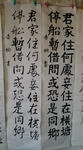 君家住何處妾住在橫塘
停船暫借問或恐是同鄉
君家住何處妾住在橫塘
停船暫借問或恐是同鄉